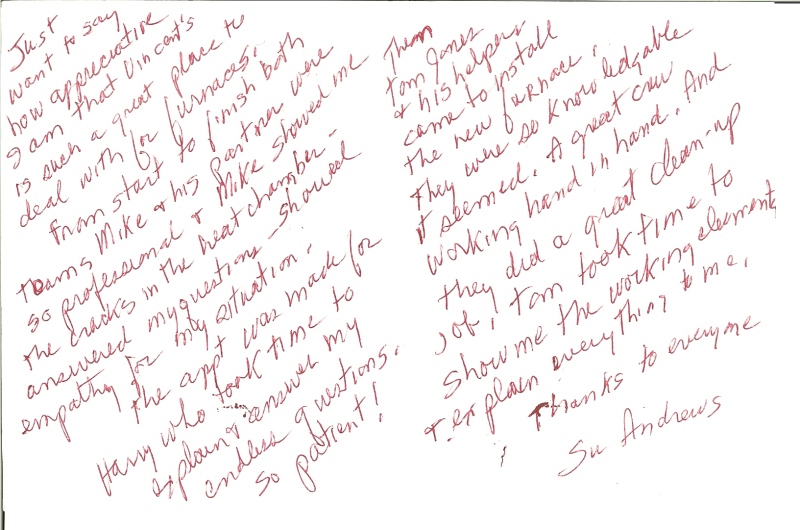 Just
want to say
how appreciative
I am that Vincent's
is such a great place to
deal with for furnaces.
From start to finish both
teams Mike & his Partner were
so professional & Mike showed me
the cracks in the heat chamber -
answered my questions - showed
empathy for my situation.
The appt was made for
Harry who took time to
explain & answer my
endless questions.
So patient!
Then
Tom Janes
& his helper
came to install
the new furnace.
They were so knowledgable
it seemed. A great crew
working hand in hand. And
they did a great clean-up
job. Tom took time to
show me the working elements
& explain everything to me.
Thanks to everyone
Su Andrews